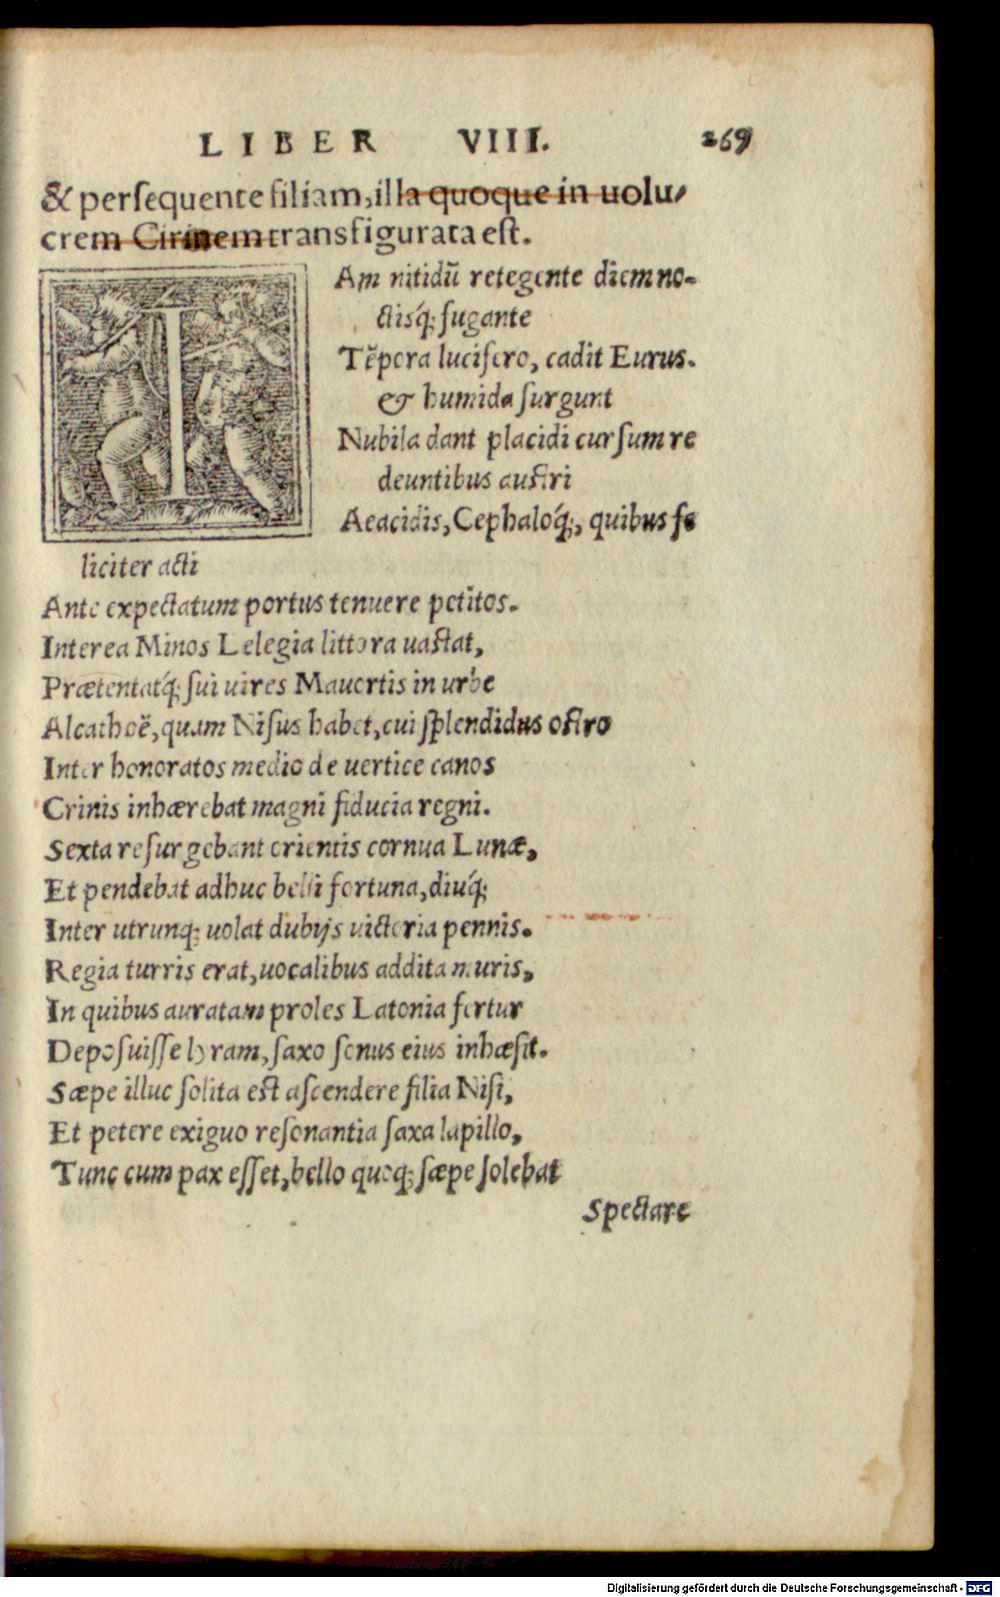 LIBER VIII. 269
& persequente filiam, illa quoque in uolu-
crem Cirinem transfigurata est.
IAm nitidū retegente diem no-
ctisq́; fugante
Tēpora lucifero, cadit Eurus.
& humida surgunt
Nubila dant placidi cursum re
deuntibus austri
Aeacidis, Cephaloq́;, quibus fe
liciter acti
Ante expectatum portus tenuere petitos.
Interea Minos Lelegia littora uastat,
Prætentatq́; sui uires Mauortis in urbe
Alcathoë, quam Nisus habet, cui splendidus ostro
Inter honoratos medio de uertice canos
Crinis inhærebat magni fiducia regni.
Sexta resurgebant orientis cornua Lunæ,
Et pendebat adhuc belli fortuna, diuq́;
Inter utrunq; uolat dubijs uictoria pennis.
Regia turris erat, uocalibus addita muris,
In quibus auratam proles Latonia fertur
Deposuisse lyram, saxo sonus eius inhæsit.
Sæpe illuc solita est ascendere filia Nisi,
Et petere exiguo resonantia saxa lapillo,
Tunc cum pax esset, bello quoq; sæpe solebat
Spectare
Digitalisierung gefördert durch die Deutsche Forschungsgemeinschaft - DFG